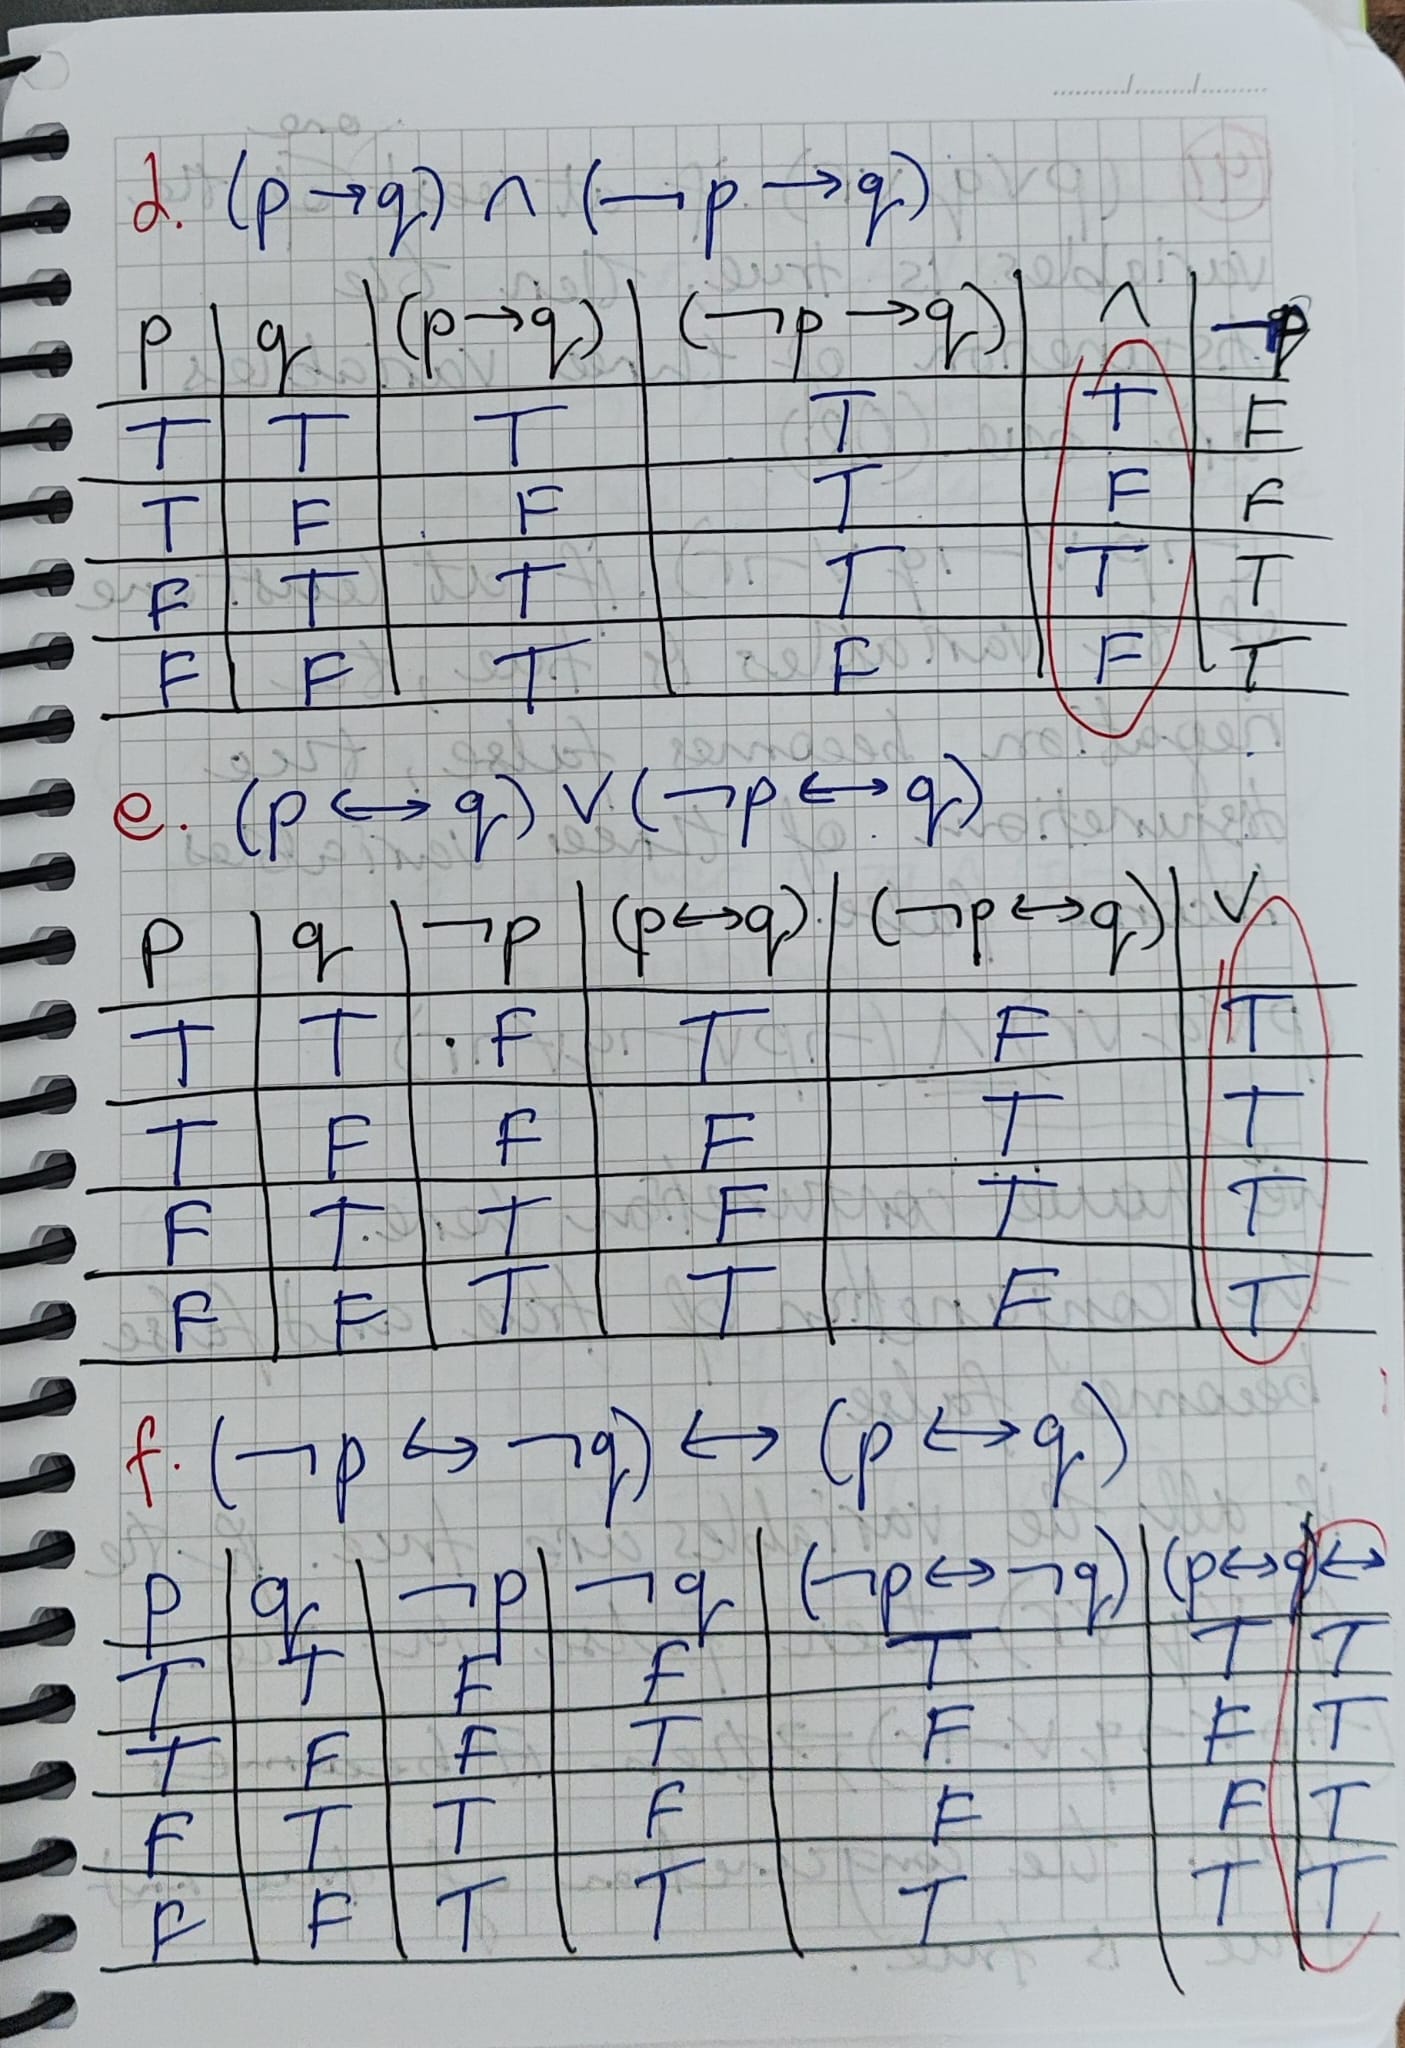 d. (p → q) ∧ (¬p → q)
p q (p→q) (¬p → q) ∧ ¬p
T T T T T F
T F F T F F
F T T T T T
F F T F F T
e. (p ↔ q) ∨ (¬p ↔ q)
p q ¬p (p↔q) (¬p↔q) ∨
T T F T F T
T F F F T T
F T T F T T
F F T T F T
f. (¬p ↔ ¬q) ↔ (p ↔ q)
p q ¬p ¬q (¬p↔¬q) (p↔q) ↔
T T F F T T T
T F F T F F T
F T T F F F T
F F T T T T T